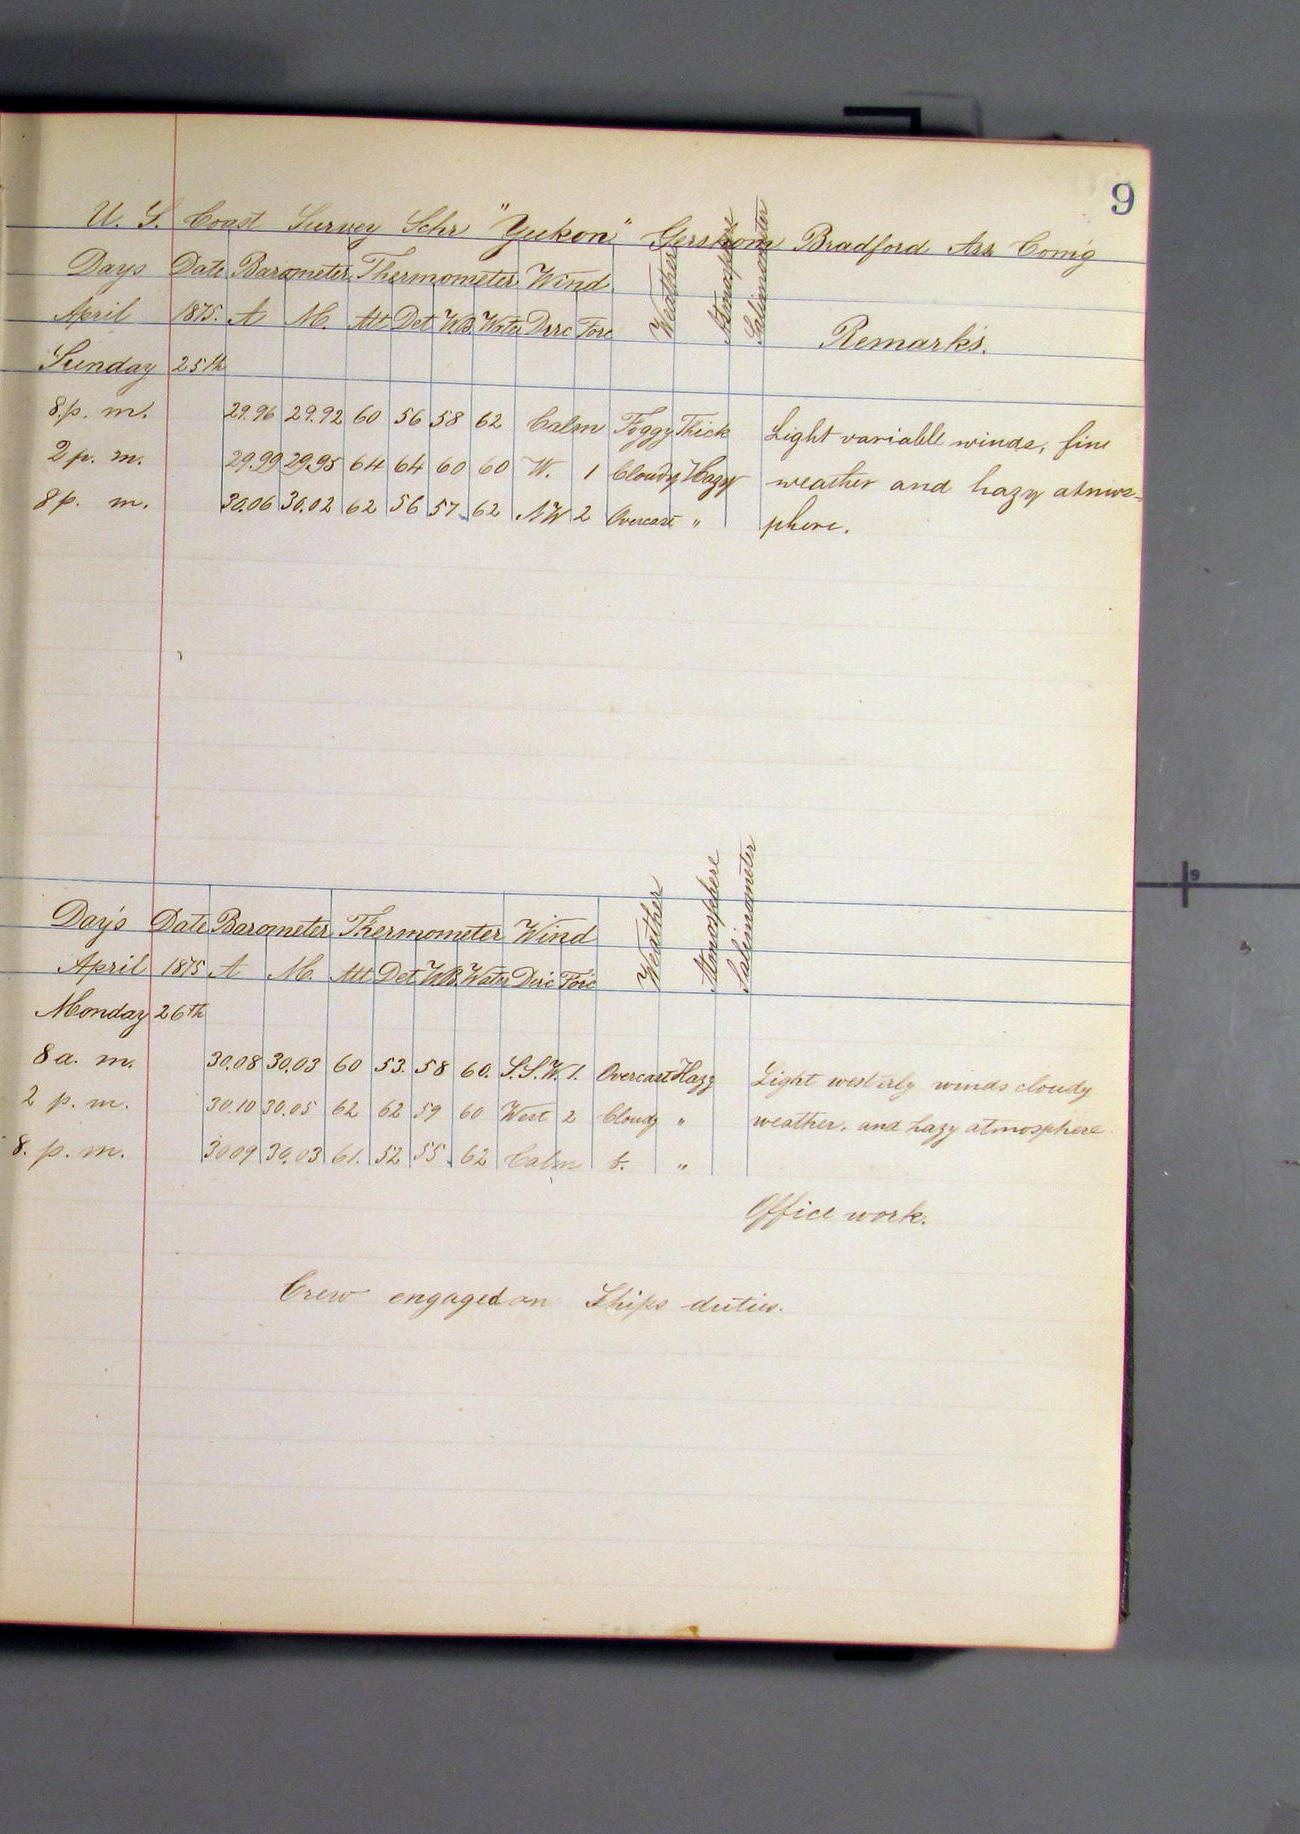 9
U. S. Coast Survey Schr "Yukon" Gershom Bradford Ass Com'g
Days Date Barometer Thermometer Wind Weather Atmosphere Salimometer
April 1875. A M. Att Det W.B. Water Direc Forc Remark's.
Sunday 25th
8. p. m. 29.96 29.92 60 56 58 62 Calm Foggy Thick Light variable winds, fine
2 p. m. 29.99 29.95 64 64 60 60 W. 1 Cloudy Hazy weather and hazy atmos-
8 p. m. 30.06 30.02 62 56 57 62 NW 2 Overcast " phere.
Day's Date Barometer Thermometer Wind Weather Atmosphere Salimometer
April 1875 A M. Att Det W.B. Water Direc Forc
Monday 26th
8 a. m. 30.08 30.03 60 53. 58 60. S.S.W. 1. Overcast Hazy Light westerly winds cloudy
2 p. m. 30.10 30.05 62 62 59 60 West 2 Cloudy " weather. and hazy atmosphere
8. p. m. 30.09 30.03 61. 52 55. 62 Calm b. "
Office work.
Crew engaged on Ships duties.
9